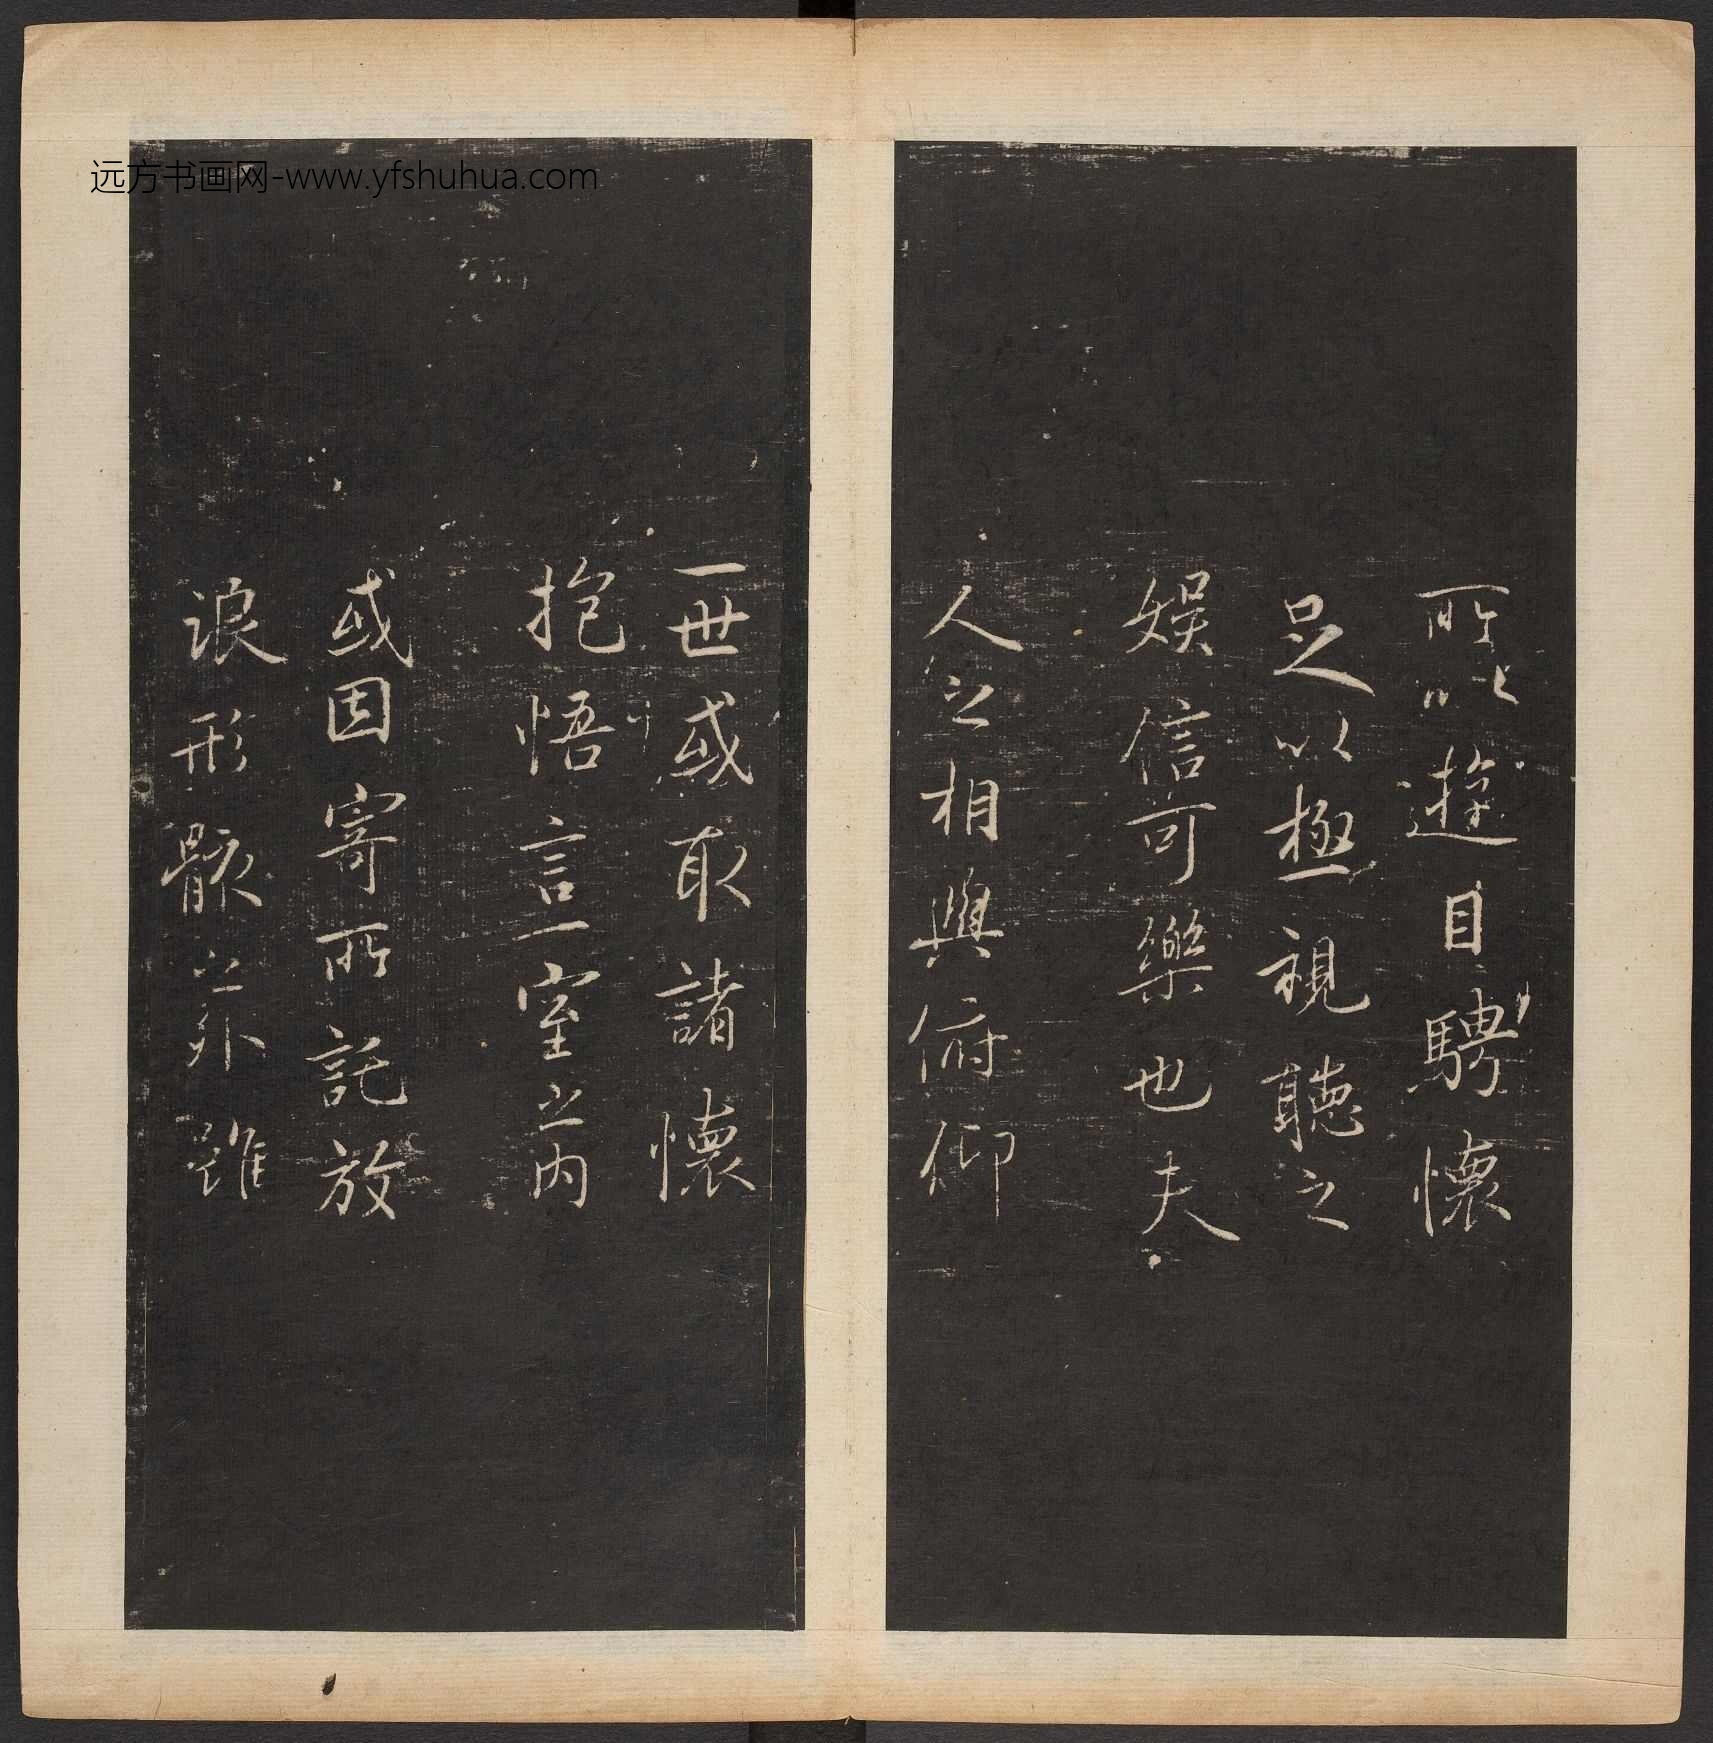 远方书画网-www.yfshuhua.com
所以遊目騁懷
足以極視聽之
娛信可樂也夫
人之相與俯仰
一世或取諸懷
抱悟言一室之內
或因寄所託放
浪形骸之外雖